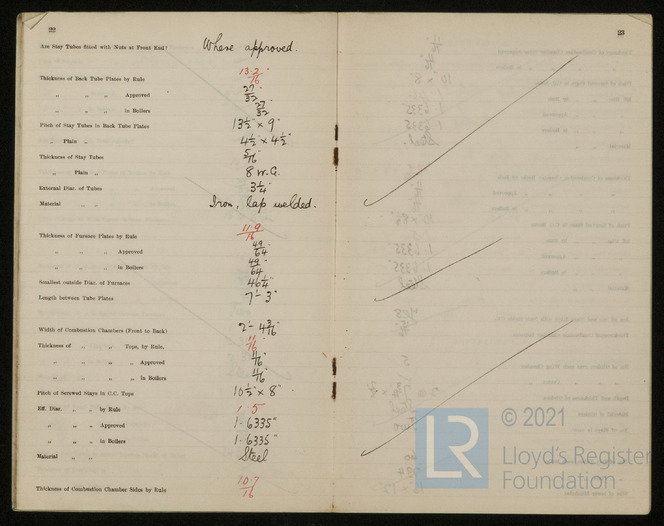 22
Are Stay Tubes fitted with Nuts at Front End? Where approved.
Thickness of Back Tube Plates by Rule 13.2/16"
" " " Approved 27/32"
" " " in Boilers 27/32"
Pitch of Stay Tubes in Back Tube Plates 13½" × 9"
" Plain " 4½" × 4½"
Thickness of Stay Tubes 5/16"
" Plain " 8 W.G.
External Diar. of Tubes 3¼"
Material " " Iron, lap welded.
Thickness of Furnace Plates by Rule 11.9/16
" " " Approved 49/64"
" " " in Boilers 49/64"
Smallest outside Diar. of Furnaces 46¼"
Length between Tube Plates 7'-3"
Width of Combustion Chambers (Front to Back) 2'-4 3/16"
Thickness of " " Tops, by Rule 11/16
" " " " Approved 11/16"
" " " " in Boilers 11/16"
Pitch of Screwed Stays in C.C. Tops 10½" × 8"
Eff. Diar. " " by Rule 1.5
" " " Approved 1.6335"
" " " in Boilers 1.6335"
Material " " Steel
Thickness of Combustion Chamber Sides by Rule 10.7/16
23
LR
© 2021
Lloyd's Register
Foundation